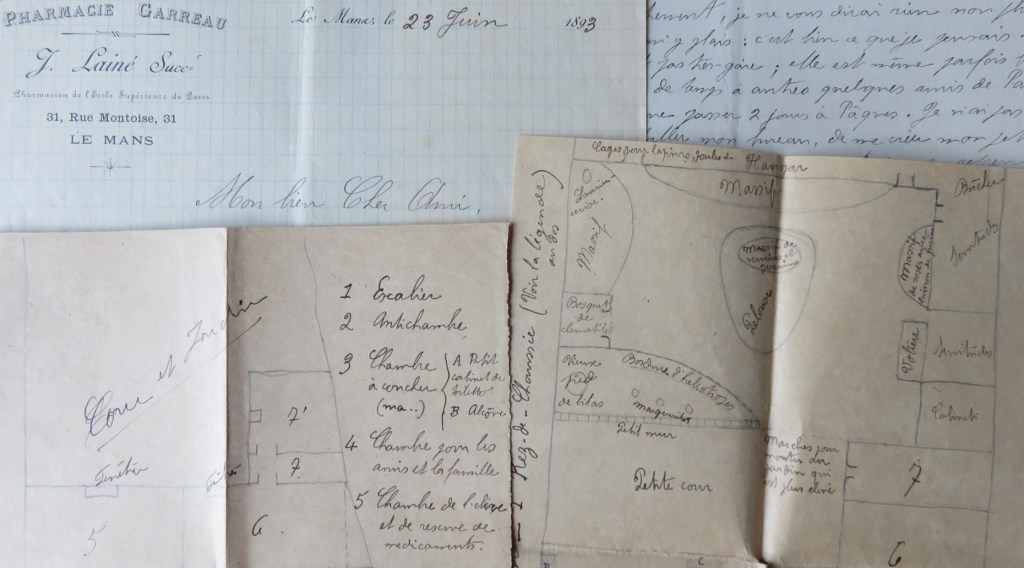 PHARMACIE GARREAU
J. Lainé Succr
Pharmacien de l'Ecole Supérieure de Paris
31, Rue Montoise, 31
LE MANS
Le Mans, le 23 Juin 1893
Mon bien Cher Ami,
, je ne vous dirai rien non
plais : c'est bien ce que je pensais
pas très-gaie ; elle est même parfois
de temps à autre quelques amis de
passer 2 jours à Pâques. Je n'ai pas
mon bureau, de me créer
Cour et Jardin
Fenêtre
5
6
7'
7
1 Escalier
2 Antichambre
3 Chambre à coucher (ma..)
A Petit cabinet de toilette
B Alcôve
4 Chambre pour les
amis et la famille
5 Chambre de l'élève
et de réserve de
médicaments.
Rez-de-Chaussée (Voir la légende)
au dos
Cages pour lapins, poules
Hangar
Massif
Laurier
cerise
Massif
Bûcher
Pelouse
Massif de
Massif
Servitudes
Bosquet
de
clematite
Volière
Servitudes
Vieux
pied
de lilas
Bordure d'héliotropes
marguerites
Petit mur
Cabinet
Petite cour
Marches pour
monter au
jardin qui
est plus élevé
7
6
B
C